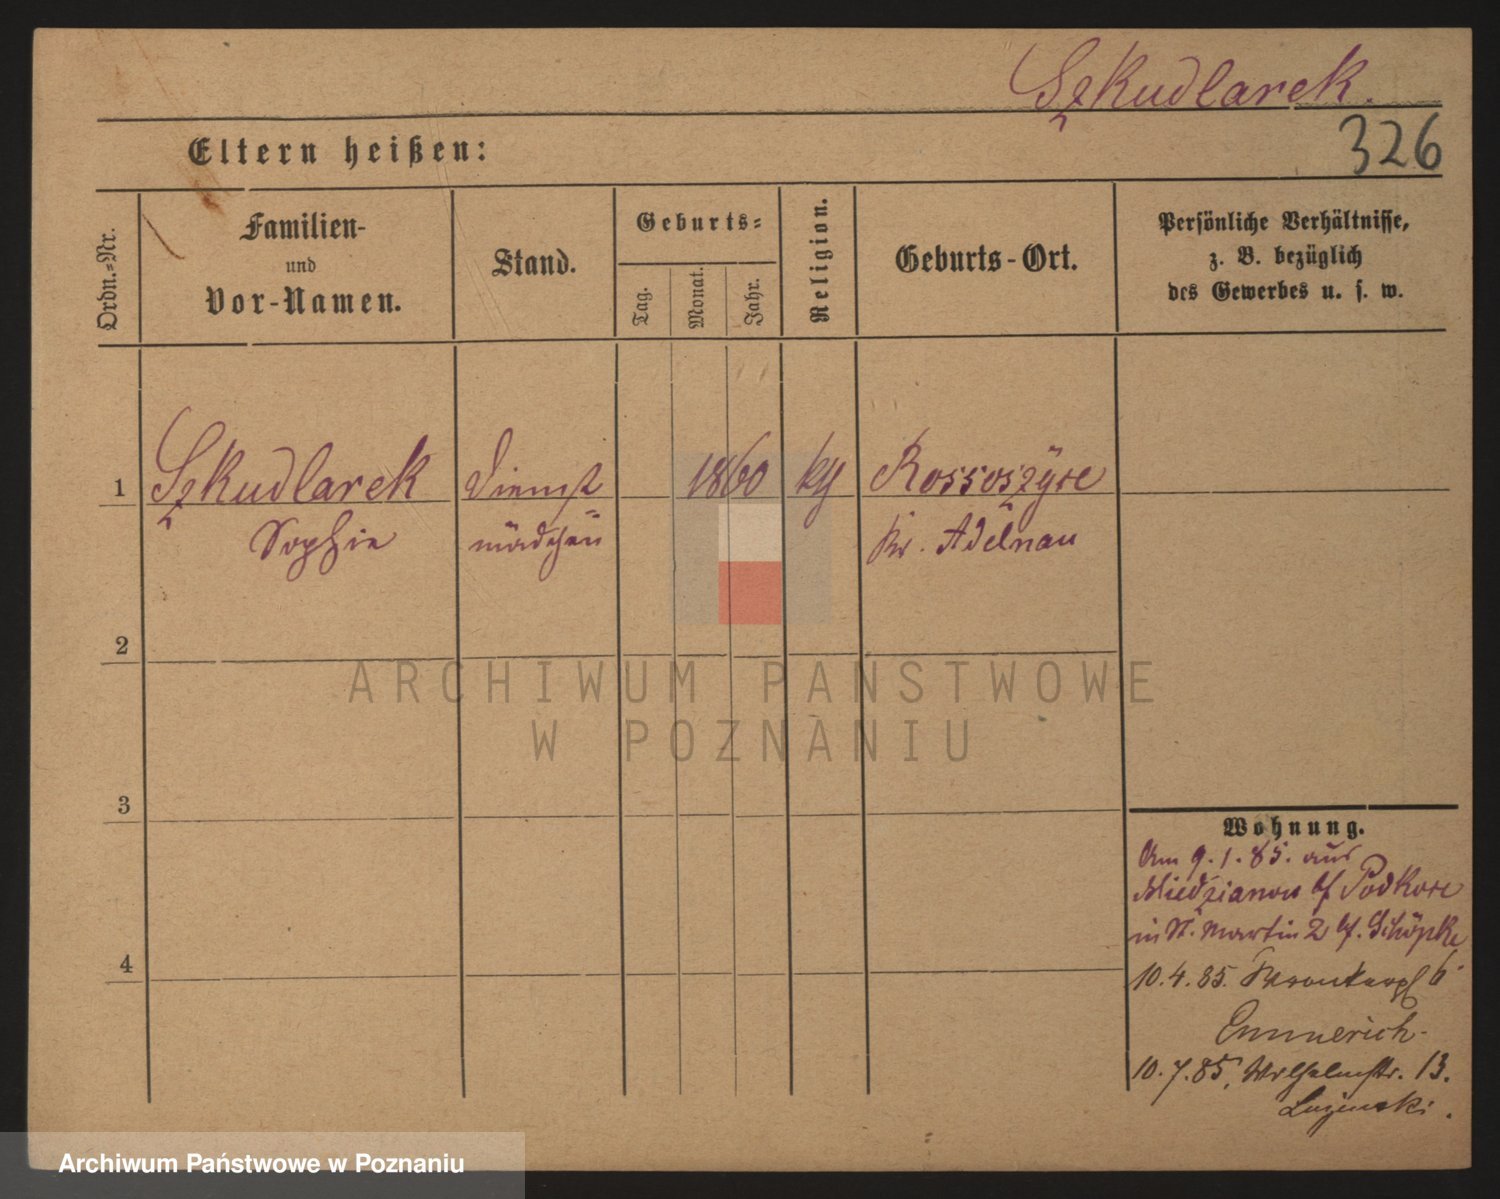 Szkudlarek.
326
Eltern heißen:
Ordn.=Nr.
Familien-
und
Vor-Namen.
Stand.
Geburts=
Tag.
Monat.
Jahr.
Religion.
Geburts-Ort.
Persönliche Verhältnisse,
z. B. bezüglich
des Gewerbes u. s. w.
1
Szkudlarek
Sophie
Dienst
mädchen
1860
Rossoszyce
Kr. Adelnau
2
3
4
Wohnung.
Am 9.1.85. aus
bf
in St. Martin 2 bf. Schöpke
10.4.85. 6
Emmerich
10.7.85. Wilhelmstr. 13.
ARCHIWUM PAŃSTWOWE
W POZNANIU
Archiwum Państwowe w Poznaniu